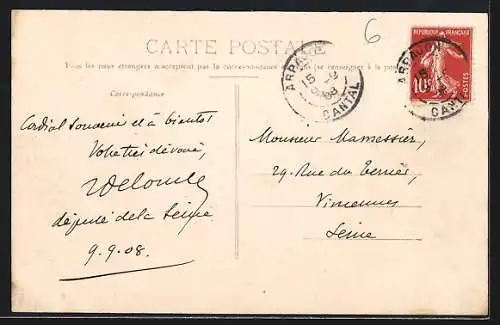 6
CARTE POSTALE
Tous les pays étrangers n'acceptent pas la correspondance au recto (se renseigner à la poste)
Correspondance
ARPAJON
CANTAL
REPUBLIQUE FRANÇAISE
10c
POSTES
ARPAJON
CANTAL
Cordial souvenir et à bientôt
Votre très dévoué,
député de la Seine
9.9.08.
Monsieur Mamessier,
29 Rue du Terrier,
Vincennes
Seine